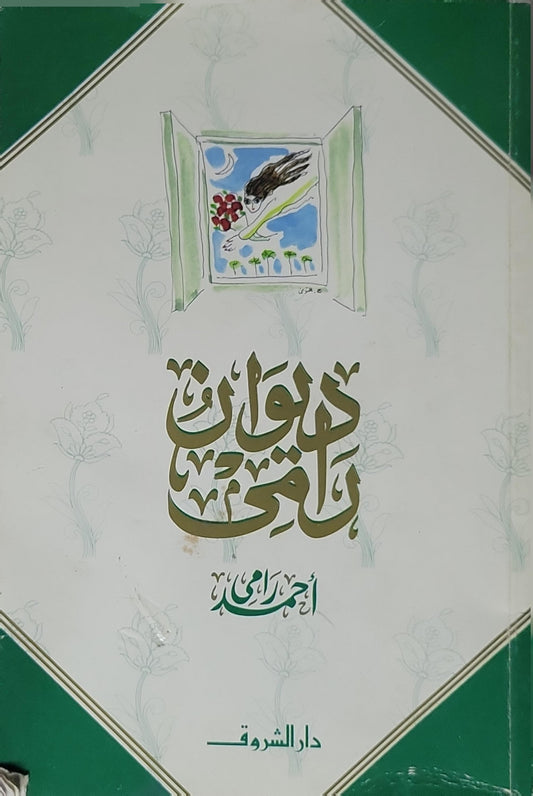 ديوان
رامى
أحمد رامى
دار الشروق